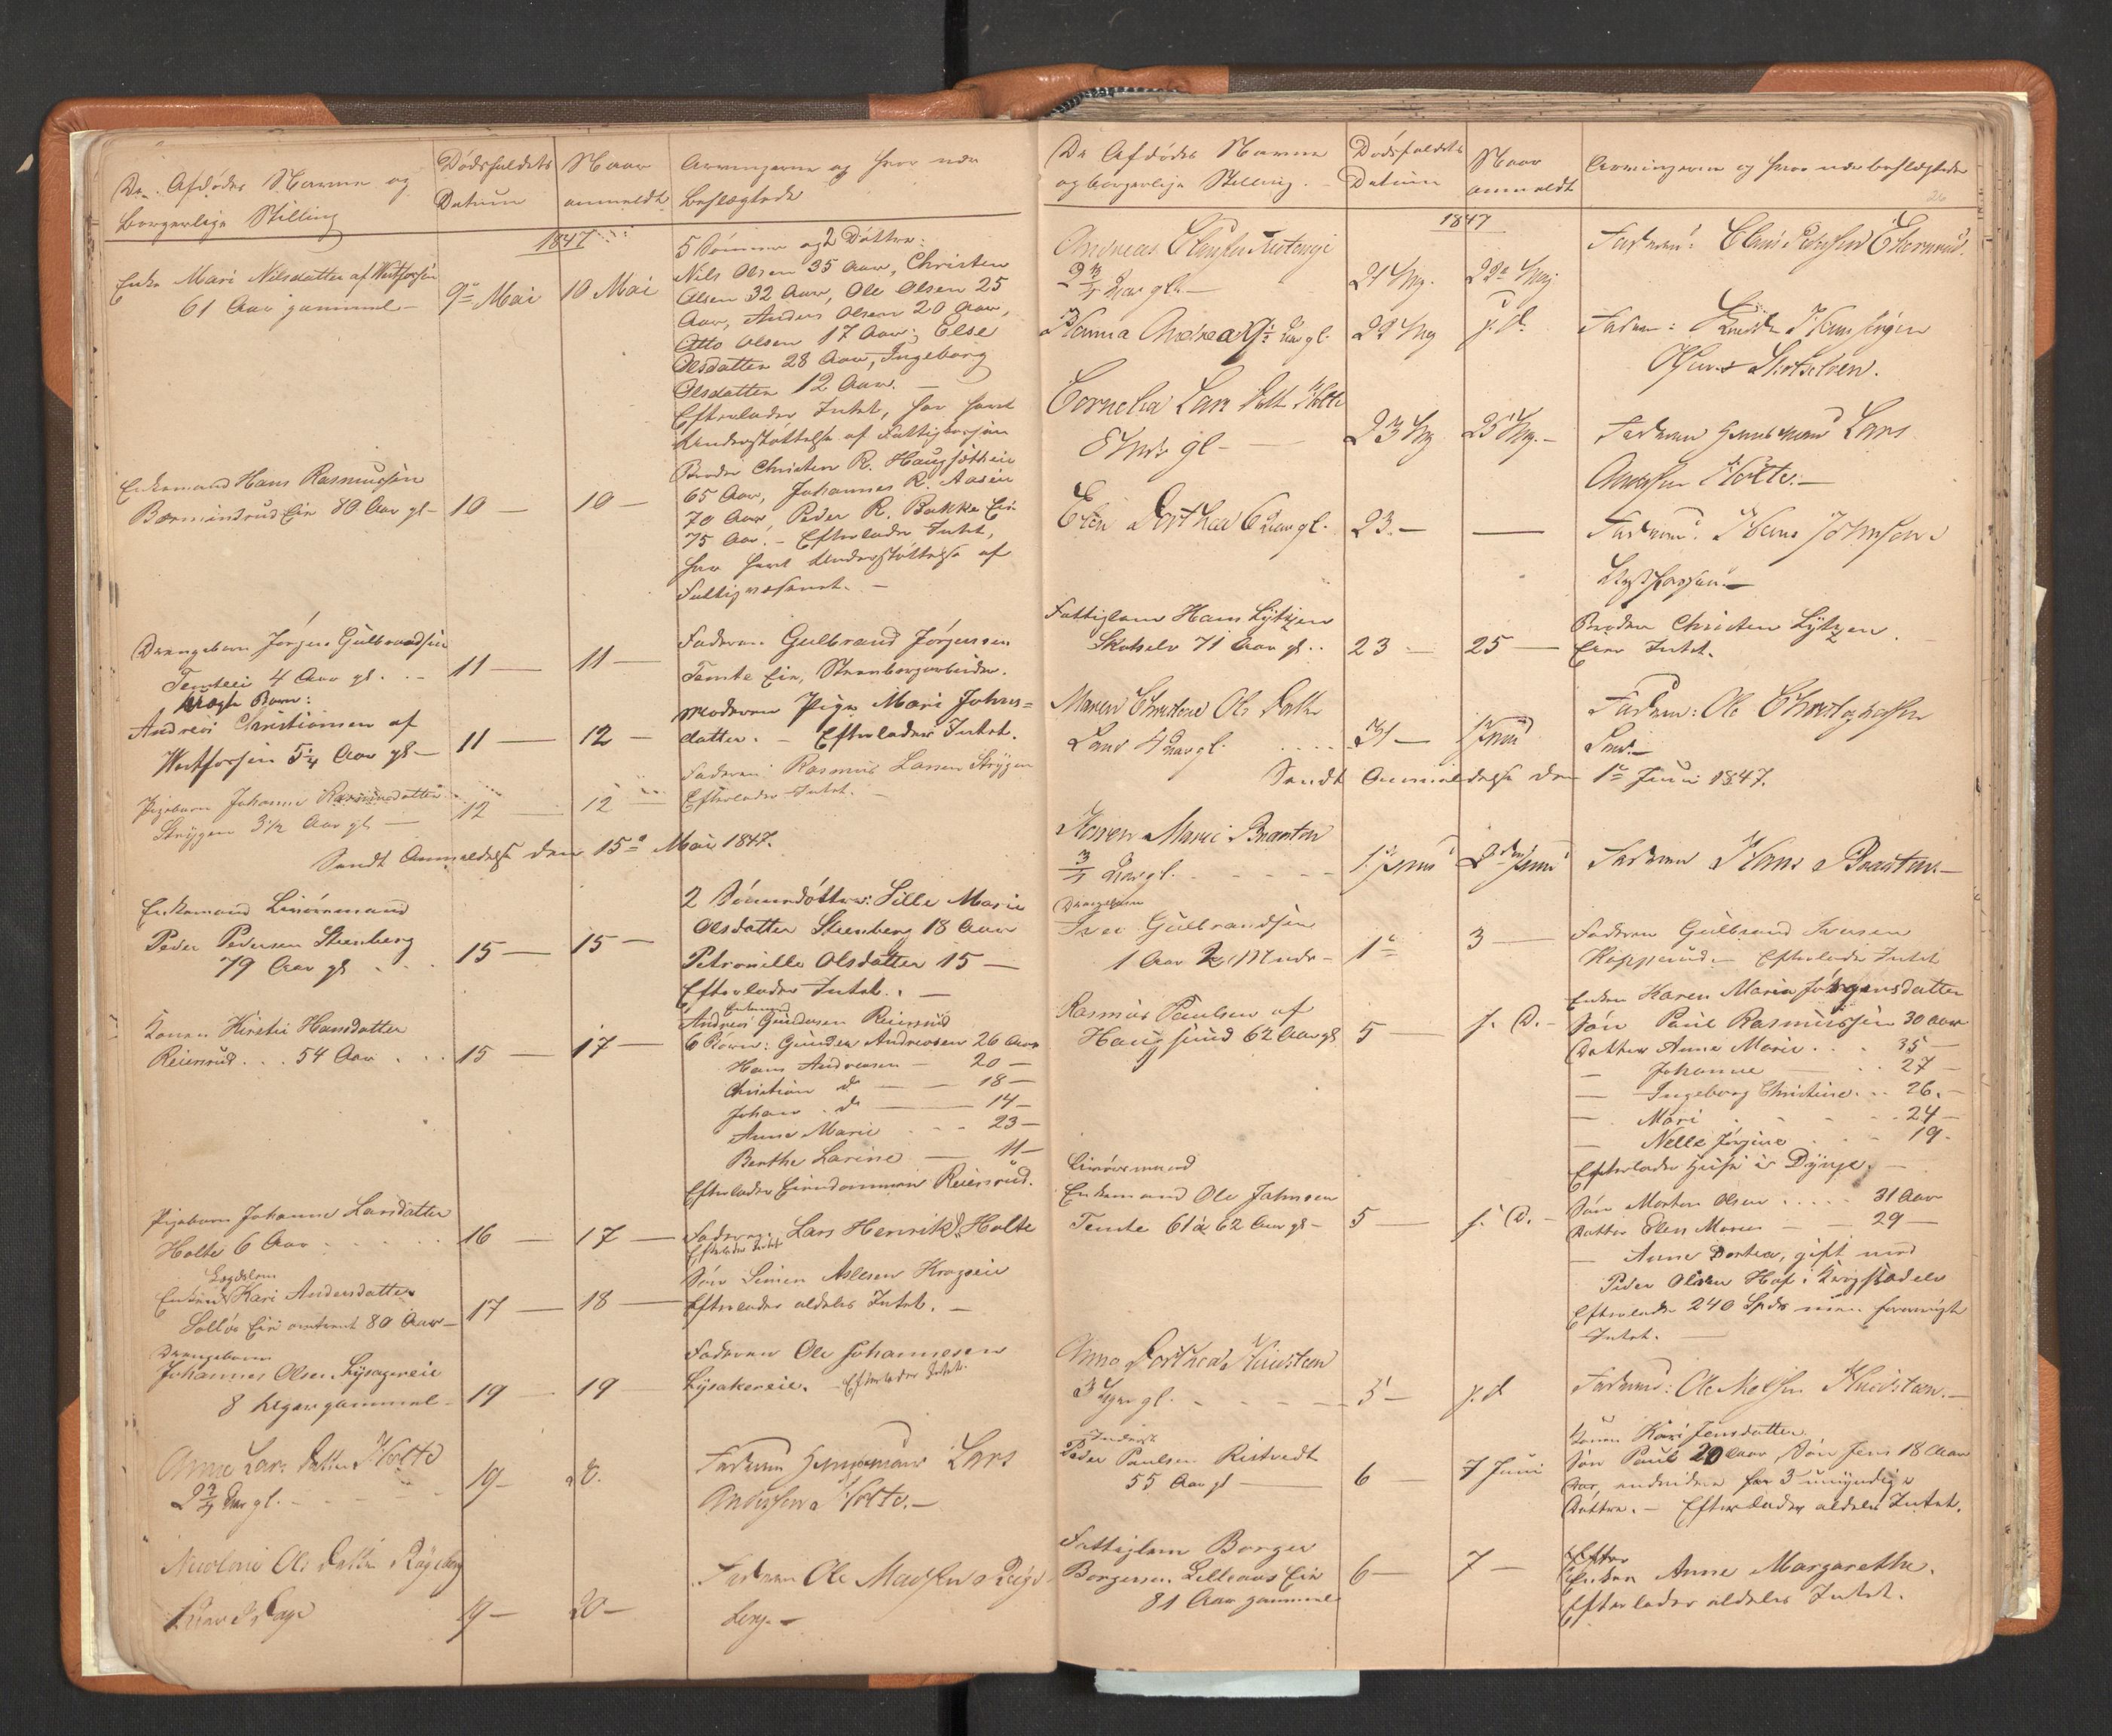 De Afdødes Navne og
borgerlige Stilling
Dødsfaldets
Datum
Naar
anmeldt
Arvingerne og hvor nær
beslægtede
1847
Enke Mari Nilsdatter af Westfossen
61 Aar gammel –
9de Mai
10 Mai
5 Sønner og 2 Døttre:
Nils Olsen 35 Aar, Christen
Olsen 32 Aar, Ole Olsen 25
Aar, Anders Olsen 20 Aar,
Otto Olsen 17 Aar; Else
Olsdatter 28 Aar, Ingeborg
Olsdatter 12 Aar. –
Efterlader Intet, har havt
Understøttelse af Fattigcassen
Enkemand Hans Rasmussen
Eie 80 Aar gl –
10 –
10 –
Brødre Christen R. Haugsetheie
65 Aar, Johannes R. Aasen
70 Aar, Peder R. Bakke Eie
75 Aar. – Efterlader Intet,
har havt Understøttelse af
Fattigvæsenet. –
Drengebarn Jørgen Gulbrandsen
Temteei 4 Aar gl. . –
11 –
11 –
Faderen Gulbrand Jørgensen
Temte Eie,
uægte Barn:
Andreas Christiansen af
Westfossen 5 1/4 Aar gl –
11 –
12 –
Moderen Pige Mari Johns=
datter. – Efterlader Intet.
Pigebarn Johanne Rasmusdatter
Strygen 3 1/2 Aar gl –
12
12
Faderen Rasmus Larsen Strygen
Efterlader Intet. –
Sendt Anmeldelse den 15de Mai 1847.
Enkemand
Peder Pedersen Steenberg
79 Aar gl . . .
15 –
15 –
2 Sønnedøttre: Lille Marie
Olsdatter Steenberg 18 Aar
Petronille Olsdatter 15 –
Efterlader Intet. . –
Konen Kirsti Hansdatter
Reiersrud . . . 54 Aar . . .
15 –
17 –
Enkemand
Andreas Gundersen Reiersrud
6 Børn: Gunder Andreasen 26 Aar
Hans Andreasen – 20 –
Christian do – 18 –
Johan do – 14 –
Anne Marie . . . 23 –
Berthe Larine – 11 –
Efterlader Eiendommen Reiersrud.
Pigebarn Johanne Larsdatter
Holte 6 Aar
16 –
17 –
Faderen: Lars Henrik Holte
Efterlader Intet
Lægdslem
Enken Kari Andersdatter
Eie omtrent 80 Aar –
17 –
18 –
Søn Simen Aslesen Krogseie
Efterlader aldeles Intet. –
Drengebarn
Johannes Olsen Lysagereie
8 Uger gammel –
19
19
Faderen Ole Johannesen
Lysakereie. – Efterlader Intet.
Anne Lars Datter Holte
2 3/4 Aar gl. –
19 –
20.
Faderen Huusmand Lars
Andersen Holte. –
Nicoline Ols Datter
19 –
20 –
Faderen Ole Madsen
De Afdødes Navne
og borgerlige Stilling.
Dødsfaldets
Datum
Naar
anmeldt
Arvingerne og hvor nær beslægtede
26
1847
Andreas
2 3/4 Aar gl. –
21 Maj.
22de Maj
Faderen:
Hanna Andrea 9 1/2 Aar gl.
22 Maj
s. d.
Faderen: Hans Jørgen
Olsen Skotselven.
Cornelia Lars Datt Holte
8 Mdr gl –
23 Maj
25 Maj. –
Faderen Huusmand Lars
Andersen Holte. –
Elen Dorthea 6 Aar gl.
23. –
–
Faderen: Hans Johnsen
Fattiglem Hans Lytzen
Skotselv 71 Aar gl. .
23 –
25 –
Broder Christen Lytzen
Eier Intet.
Maren Christine Ols Datter
4 Aar gl. . . . .
31 –
1 Juni
Faderen: Ole Christophersen
Sendt Anmeldelse den 1de Juni 1847.
Karen Marie Braaten
3/4 Aar gl. – – –
1ste Juni
2den Juni
Faderen Hans Braaten –
Drengebarn
Iver Gulbrandsen
1 Aar 2 Mndr –
1de
3 –
Faderen Gulbrand Iversen
Efterlader Intet
Rasmus Paulsen af
Haugsund 62 Aar gl
5 –
s. D. –
Enken Karen Maria Jørgensdatter
Søn Paul Rasmussen 30 Aar
Datter Anne Marie . . . 35 –
– Johanne . . 27 –
– Ingeborg Christine . . 26. –
– Mari . . . 24 –
– Nelle Jørgine . . 19.
Efterlader Huse i Dynge. –
Enkemand Ole Johnsen
Temte 61 à 62 Aar gl –
5 –
s. D. –
Søn Morten Olsen . . . . 31 Aar
Datter Elen Maren – 29 –
– Anne Dorthea, gift med
Peder Olsen Hof i
Efterlader 240 Spdr men forøvrigt
Intet. –
Anne Dorthea
3 Uger gl. – – –
5 –
s. d
Faderen: Ole
Inderst
Peder Paulsen Ristvedt
55 Aar gl –
6 –
7 Juni
Konen Kari Jensdatter
Søn Paul 20 Aar, Søn Jens 18 Aar
Aar, endvidere for 3 umyndige
Døttre. – Efterlader aldeles Intet.
Fattiglem Borger
Borgersen Lilleaas Eie
81 Aar gammel
6 –
7 –
Efter
Enken Anne Margarethe.
Efterlader aldeles Intet.